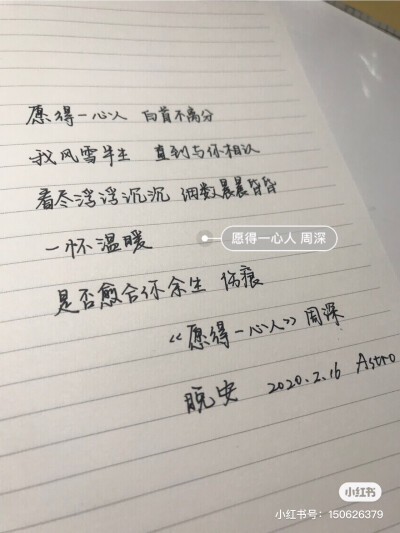 愿得一心人 白首不离分
我风雪半生 直到与你相认
看尽浮浮沉沉 细数晨晨昏昏
一怀温暖
愿得一心人 周深
是否愈合你余生 伤痕
《愿得一心人》周深
晚安 2020.2.16 Astro
小红书
小红书号：150626379